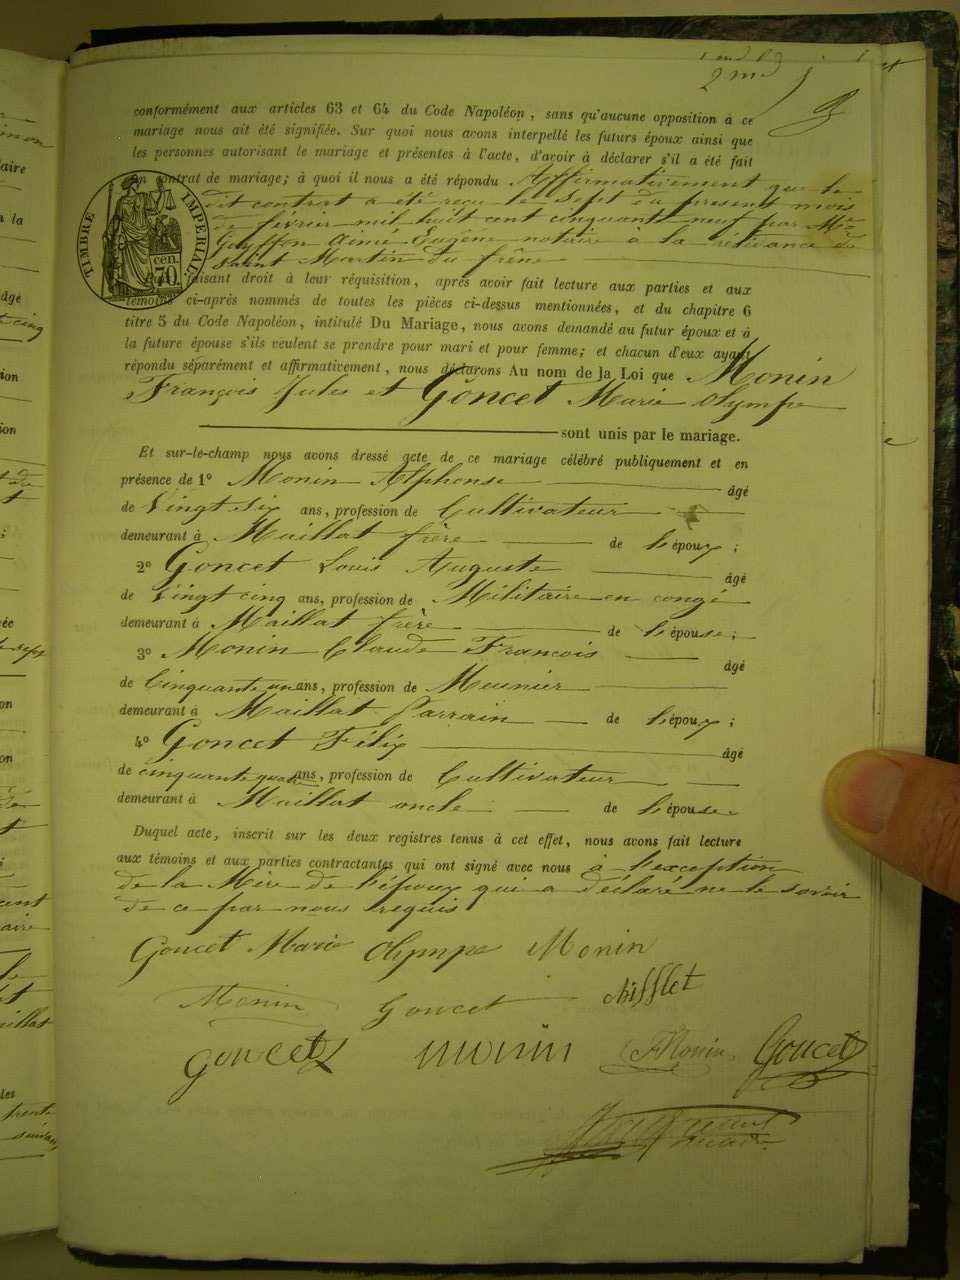 2me
conformément aux articles 63 et 64 du Code Napoléon, sans qu'aucune opposition à ce
mariage nous ait été signifiée. Sur quoi nous avons interpellé les futurs époux ainsi que
les personnes autorisant le mariage et présentes à l'acte, d'avoir à déclarer s'il a été fait
un contrat de mariage; à quoi il nous a été répondu Affirmativement que le
dit contrat a été reçu le sept du présent mois
de février mil huit cent cinquante neuf par Me
Guyffon Aimé Eugène notaire à la résidence de
Saint Martin du frêne
TIMBRE IMPÉRIAL
70 cen.
faisant droit à leur réquisition, après avoir fait lecture aux parties et aux
témoins ci-après nommés de toutes les pièces ci-dessus mentionnées, et du chapitre 6
titre 5 du Code Napoléon, intitulé Du Mariage, nous avons demandé au futur époux et à
la future épouse s'ils veulent se prendre pour mari et pour femme; et chacun d'eux ayant
répondu séparément et affirmativement, nous déclarons Au nom de la Loi que Monin
François Jules et Goncet Marie Olympe
sont unis par le mariage.
Et sur-le-champ nous avons dressé acte de ce mariage célébré publiquement et en
présence de 1° Monin Alphonse âgé
de Vingt six ans, profession de Cultivateur
demeurant à Maillat frère de l'époux;
2° Goncet Louis Auguste âgé
de Vingt cinq ans, profession de Militaire en congé
demeurant à Maillat frère de l'épouse;
3° Monin Claude François âgé
de Cinquante un ans, profession de Meunier
demeurant à Maillat Parrain de l'époux;
4° Goncet Félix âgé
de cinquante quatre ans, profession de Cultivateur
demeurant à Maillat oncle de l'épouse
Duquel acte, inscrit sur les deux registres tenus à cet effet, nous avons fait lecture
aux témoins et aux parties contractantes qui ont signé avec nous à l'exception
de la Mère de l'époux qui a déclaré ne le savoir
de ce par nous requis
Goncet Marie Olympe Monin
Monin Goncet Nifflet
Goncet monin Monin Goncet
maire